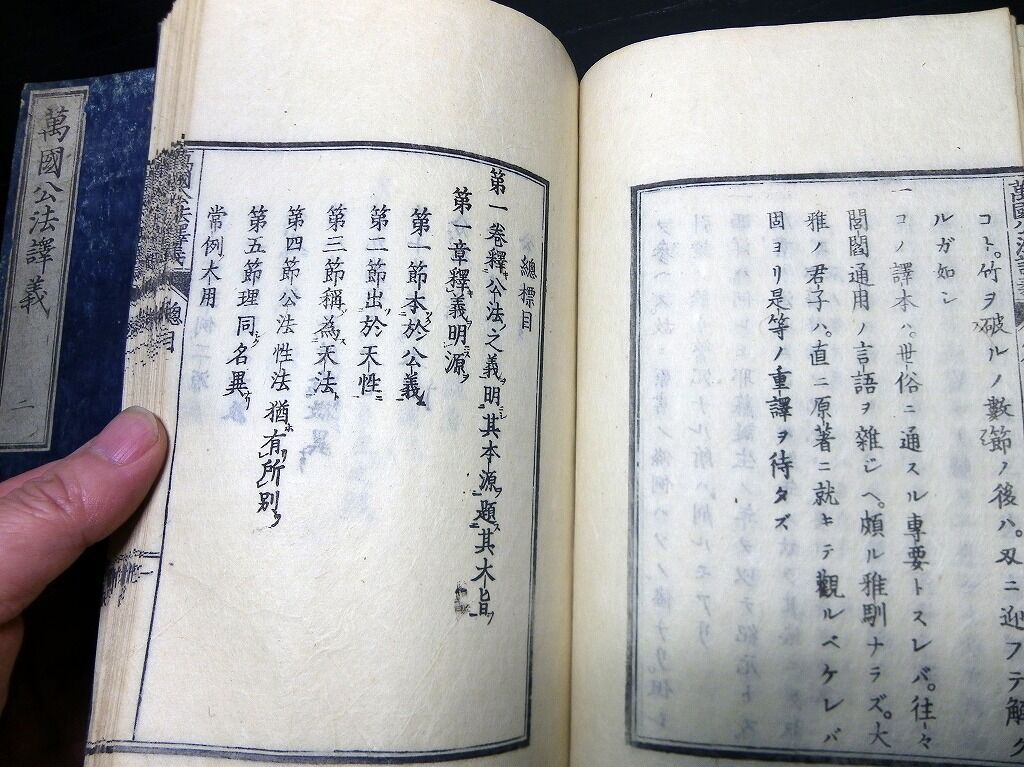 コト。竹ヲ破ルノ數節ノ後ハ。刄ニ迎フテ解ク
ルガ如シ
一 コノ譯本ハ。世俗ニ通スル専要トスレバ。往々
閭閻通用ノ言語ヲ雜ジヘ。頗ル雅馴ナラズ。大
雅ノ君子ハ。直ニ原著ニ就キテ觀ルベケレバ
固ヨリ是等ノ重譯ヲ待タズ
總標目
第一卷釋公法之義明其本源題其大旨
第一章釋義明源
第一節本於公義
第二節出於天性
第三節稱為天法
第四節公法性法猶有所別
第五節理同名異
常例木用
萬國公法譯義
總目
萬國公法譯義
二